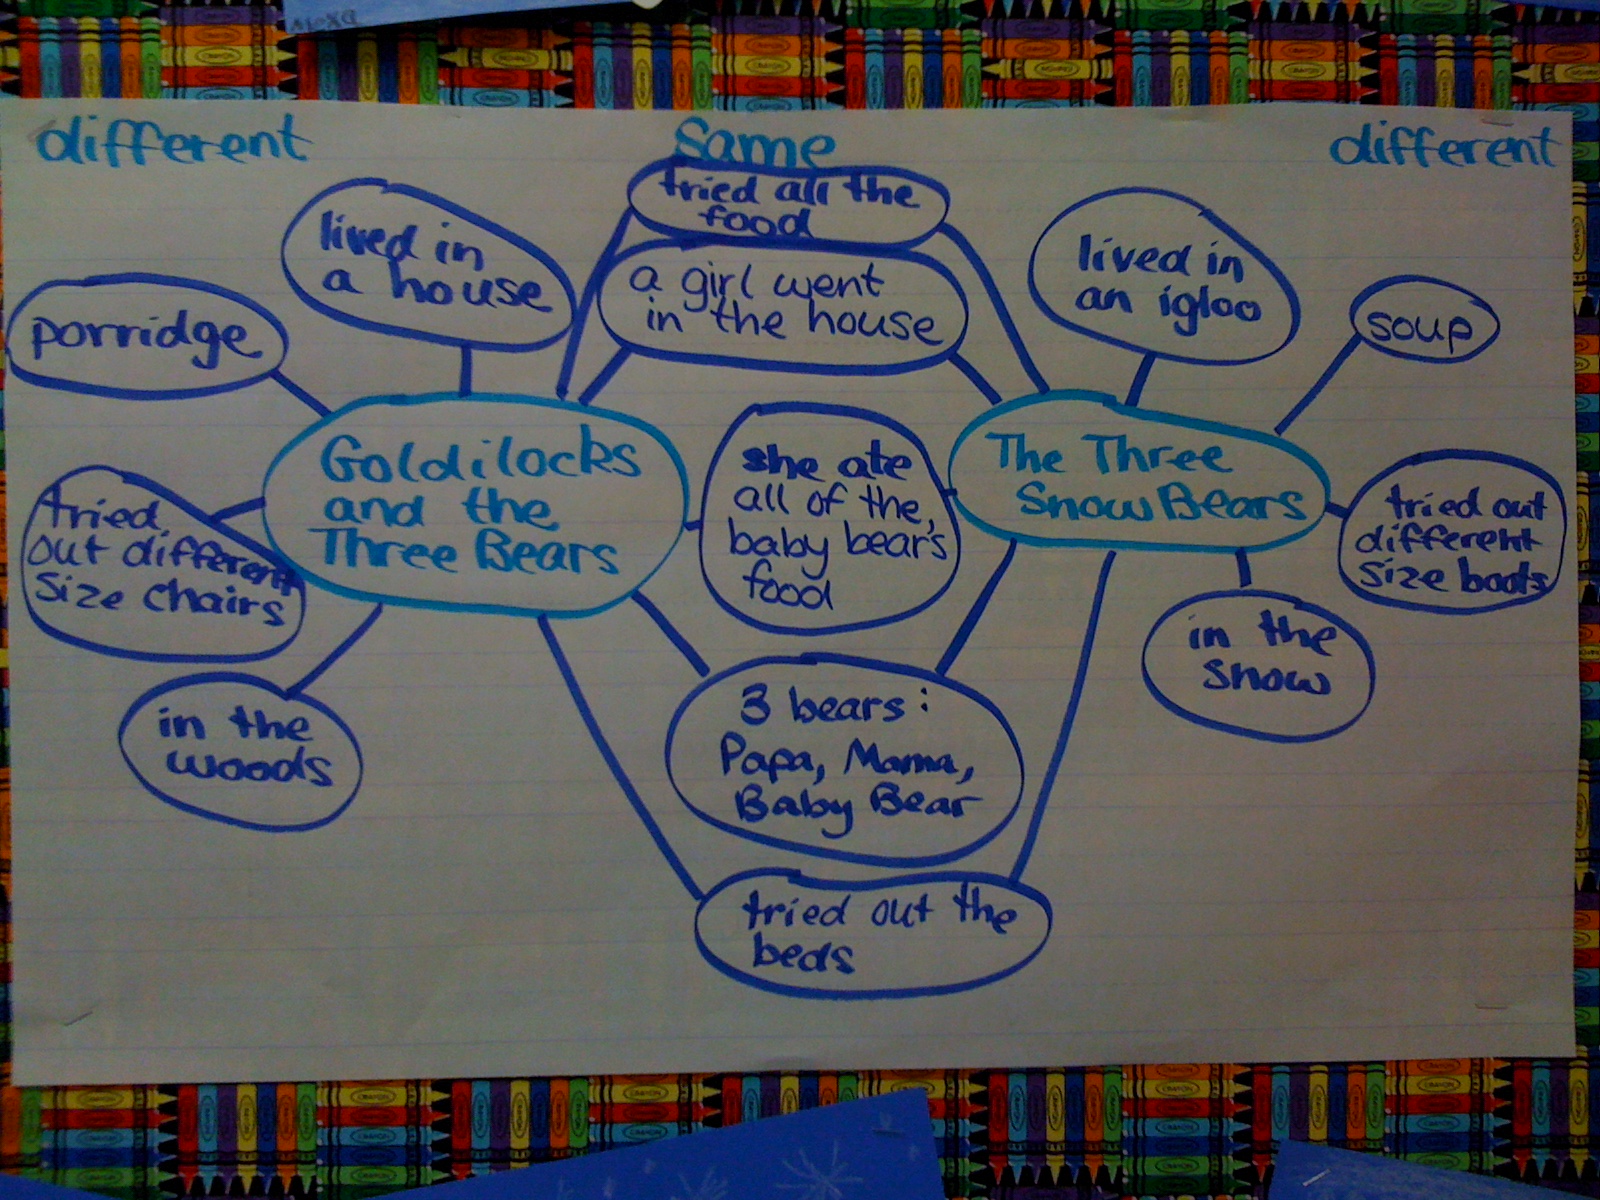 different
same
different
tried all the
food
lived in
a house
a girl went
in the house
lived in
an igloo
porridge
soup
Goldilocks
and the
Three Bears
she ate
all of the
baby bear's
food
The Three
Snow Bears
tried
out different
size chairs
tried out
different
size boots
in the
woods
3 bears:
Papa, Mama,
Baby Bear
in the
snow
tried out the
beds